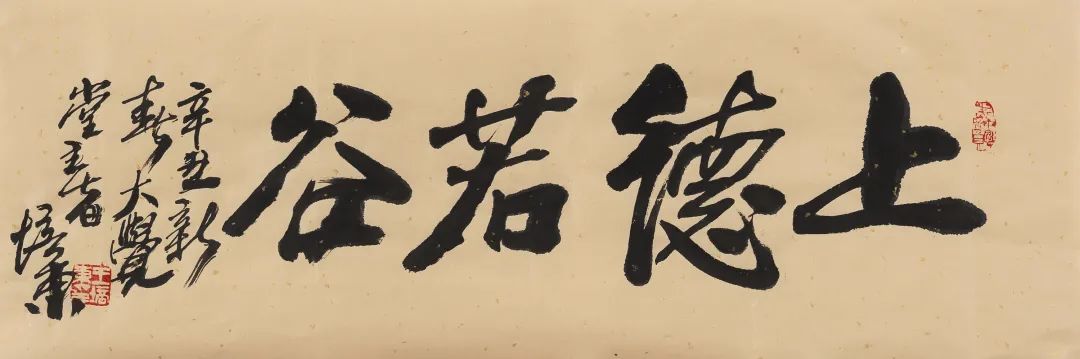 上德若谷
辛丑新
春大觉
堂主者
培东